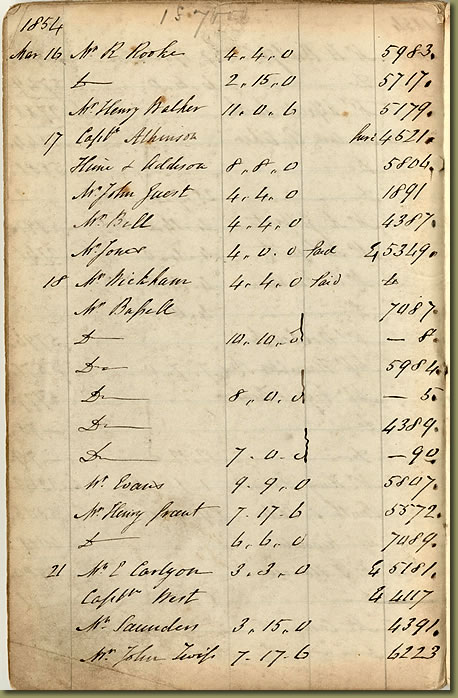 1854
Mar 16 Mr R Rooke 4.4.0 5983.
D 2.15.0 5717.
Mr Henry Balker 11.0.6 5179.
17 Captn Atkinson 4521.
Hime & Addison 8.8.0 5804.
Mr John Guest 4.4.0 1891
Mr Bell 4.4.0 4387.
Mr Jones 4.0.0 Paid & 5349.
18 Mr Wickham 4.4.0 Paid
Mr Bassell 7087.
Do 10.10.0 — 8.
Do 5984.
Do 8.0.0 — 5.
Do 4389.
Do 7-0-0 — 90
Mr Evans 9-9.0 5807.
Mr Henry Grant 7-17-6 5572.
D 6.6.0 7089.
21 Mr E Carlyon 3.3.0 & 5181.
Captn West & 4117
Mr Saunders 3.15.0 4391.
Mr John Twiss 7-17-6 6223